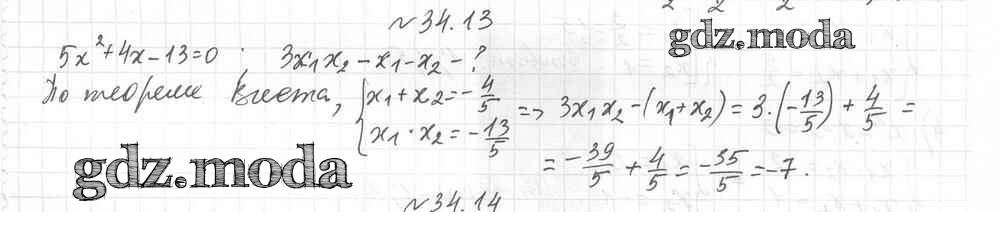 №34.13
gdz.moda
5x²+4x-13=0; 3x₁x₂-x₁-x₂-?
По теореме Виета, {x₁+x₂=-4/5 x₁·x₂=-13/5 => 3x₁x₂-(x₁+x₂)=3·(-13/5)+4/5=
=-39/5+4/5=-35/5=-7.
gdz.moda
№34.14